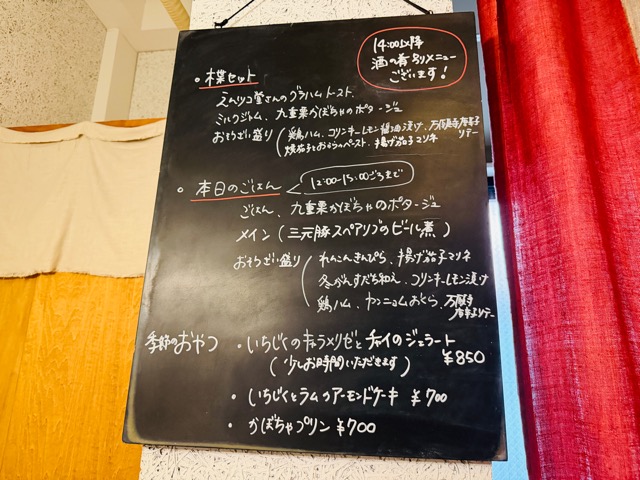 14:00以降
酒の肴別メニュー
ございます!
・木葉セット
エムツコ堂さんのグラハムトースト、
ミルクジャム、九重栗かぼちゃのポタージュ
おそうざい盛り(鶏ハム、コリンキーレモン醤油漬け、万願寺唐辛子
ソテー
焼茄子とおからのペースト、揚げ茄子マリネ
・本日のごはん
12:00~15:00ごろまで
ごはん、九重栗かぼちゃのポタージュ
メイン(三元豚スペアリブのビール煮)
おそうざい盛り
れんこんきんぴら、揚げ茄子マリネ
冬がんすだち和え、コリンキーレモン漬け
鶏ハム、ヤンニョムおくら、万願寺
唐辛子ソテー
季節のおやつ
・いちじくのキャラメリゼとチャイのジェラート
(少しお時間いただきます) ¥850
・いちじくとラムのアーモンドケーキ ¥700
・かぼちゃプリン ¥700